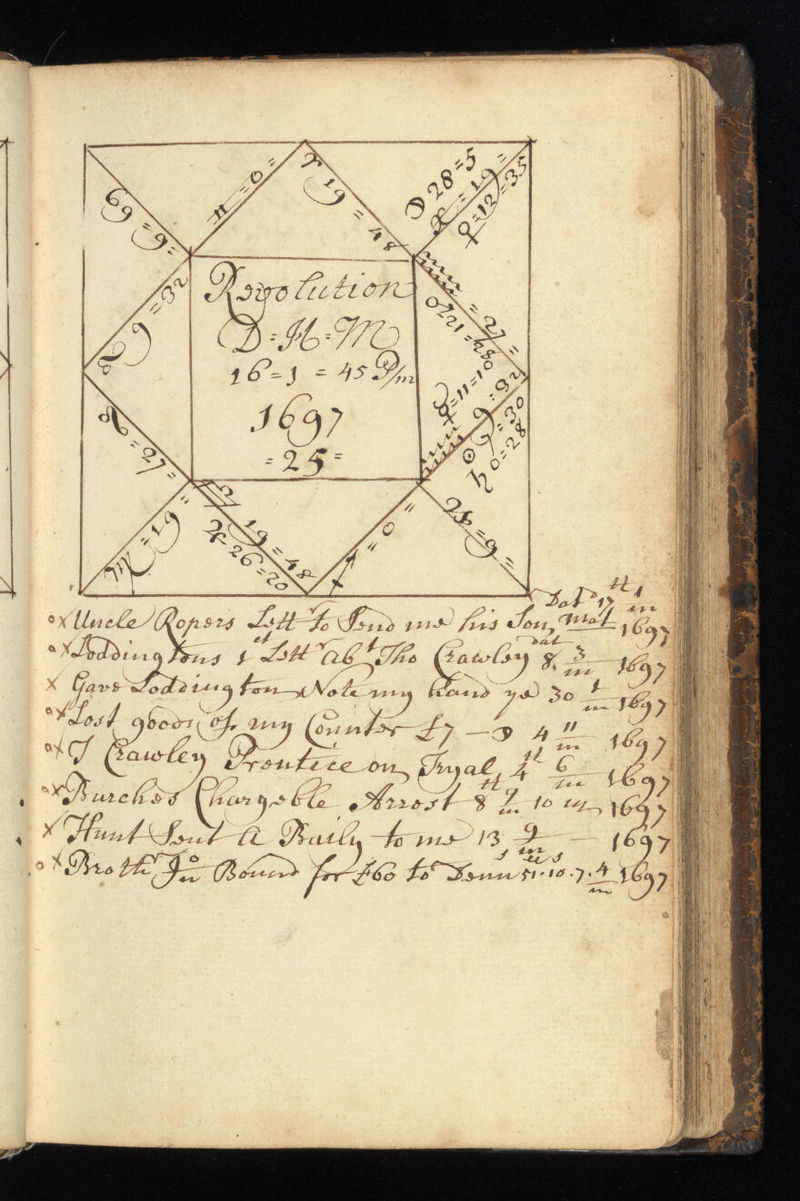 ♋ 9 = 9 =
♊ = 0 =
♈ 19 = 48
☽ 28 = 5
♓ = 19 =
♀ = 12 = 35
♉ 9 = 32
♒ = 27 =
Revolution
D = H = M
16 = 1 = 45 P/m
1697
= 25 =
♌ = 27 =
♍ = 19 =
♎ 19 = 48
♃ 26 = 20
♐ = 0 =
♑ = 9 =
☿ = 11 = 10
♏ 9 = 32
☉ 7 = 30
♄ 0 = 28
o x Uncle Ropers Lettr to Send me his Son Datd 17th 1/m Mat 1697
o x Loddingtons 1st Lettr abt Tho Crawley dat 8. 3/m 1697
x Gave Loddington Note my hand ye 30 1/m 1697
o x Lost goods of my Counter £7 — ☽ 4 11/m 1697
o x T Crawley Prentice on Tryal 4th 6/m 1697
o x Burches Chargeble Arrest 8th 9/m 10 m 1697
x Hunt Sent A Baily to me 13 9/m 1697
o x Brothr Jno Bound for £60 to Denn 51s. 10. 7. 4/m 1697